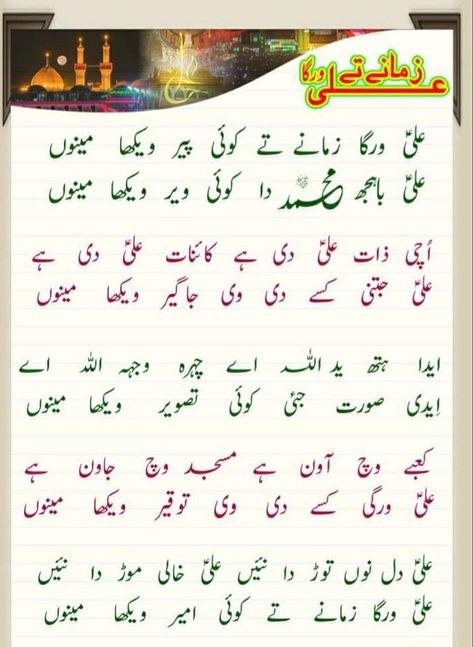 علیؑ ورگا زمانے تے
علیؑ ورگا زمانے تے کوئی پیر ویکھا مینوں
علیؑ باہجھ محمدﷺ دا کوئی ویر ویکھا مینوں
اُچی ذات علیؑ دی ہے کائنات علیؑ دی ہے
علیؑ جتنی کسے دی وی جاگیر ویکھا مینوں
ایدا ہتھ ید اللہ اے چہرہ وجہہ اللہ اے
اِیدی صورت جئی کوئی تصویر ویکھا مینوں
کعبے وچ آون ہے مسجد وچ جاون ہے
علیؑ ورگی کسے دی وی توقیر ویکھا مینوں
علیؑ دل نوں توڑ دا نئیں علیؑ خالی موڑ دا نئیں
علیؑ ورگا زمانے تے کوئی امیر ویکھا مینوں